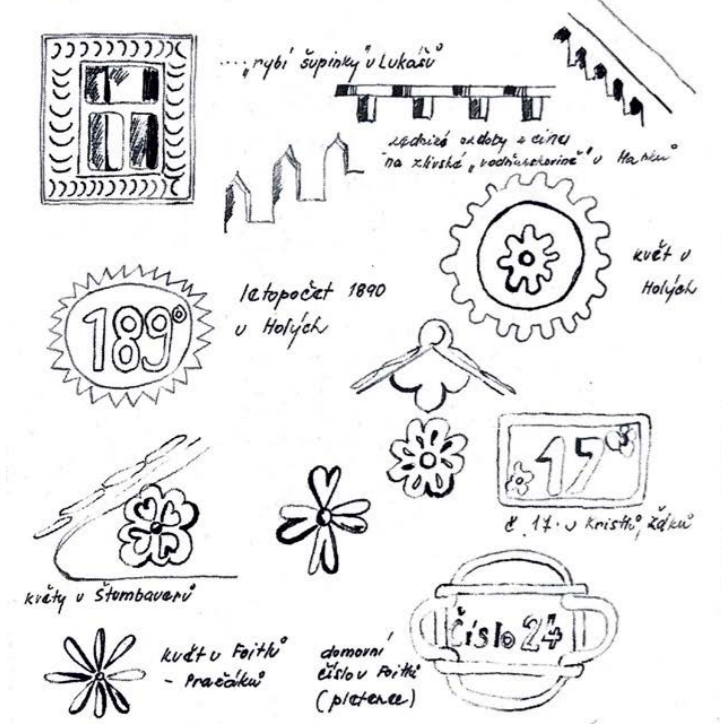 .... "rybí šupinky" u Lukášů
ozdoby z cihel
na zlivské "vodňaskovině" u
květ u
Holých
letopočet 1890
u Holých
1890
17
č. 17. u Kristlů, Žáků
květy u Štumbauerů
květ u Foitlů
- Pračáků
domovní
číslo u Foitlů
(pletence)
Číslo 24